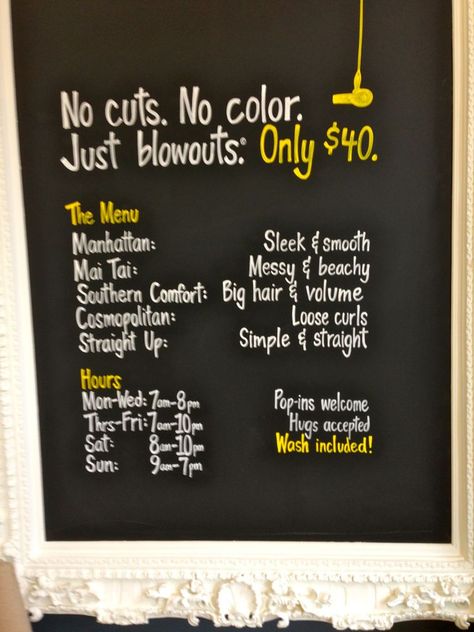 No cuts. No color.
Just blowouts.® Only $40.
The Menu
Manhattan: Sleek & smooth
Mai Tai: Messy & beachy
Southern Comfort: Big hair & volume
Cosmopolitan: Loose curls
Straight Up: Simple & straight
Hours
Mon-Wed: 7am-8pm
Thrs-Fri: 7am-10pm
Sat: 8am-10pm
Sun: 9am-7pm
Pop-ins welcome
Hugs accepted
Wash included!